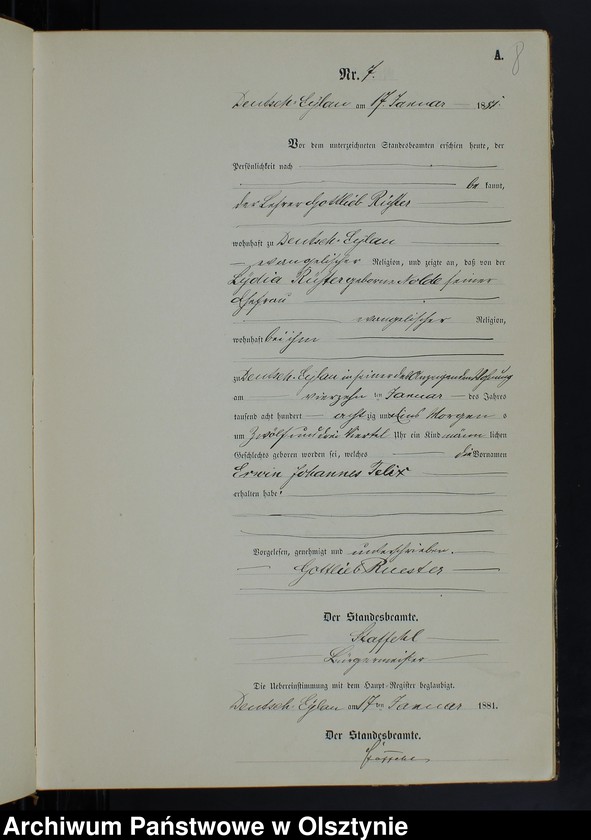 A. 8
Nr. 7.
Deutsch-Eylau am 17. Januar 1881.
Vor dem unterzeichneten Standesbeamten erschien heute, der
Persönlichkeit nach
be kannt,
der Lehrer Gottlieb Rüster
wohnhaft zu Deutsch-Eylau
evangelischer Religion, und zeigte an, daß von der
Lydia Rüster geborne Nolde seiner
Ehefrau
evangelischer Religion,
wohnhaft bei ihm
zu Deutsch-Eylau in seiner des Anzeigenden Wohnung
am vierzehn ten Januar des Jahres
tausend acht hundert acht zig und eins Morgens
um Zwölf und drei Viertel Uhr ein Kind männ lichen
Geschlechts geboren worden sei, welches die Vornamen
Erwin Johannes Felix
erhalten habe.
Vorgelesen, genehmigt und unterschrieben.
Gottlieb Ruester
Der Standesbeamte.
Staffehl
Bürgermeister
Die Uebereinstimmung mit dem Haupt-Register beglaubigt.
Deutsch-Eylau am 17ten Januar 1881.
Der Standesbeamte.
Archiwum Państwowe w Olsztynie